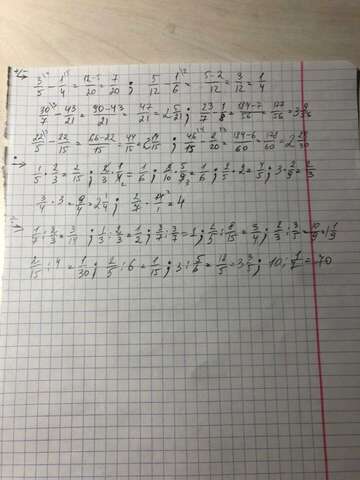 3/5 - 1/4 = 12-5/20 = 7/20; 5/12 - 1/6 = 5-2/12 = 3/12 = 1/4
30/7 - 43/21 = 90-43/21 = 47/21 = 2 5/21; 23/7 - 1/8 = 184-7/56 = 177/56 = 3 9/56
22/5 - 22/15 = 66-22/15 = 44/15 = 2 14/15; 46/15 - 2/20 = 184-6/60 = 178/60 = 2 29/30
1/5 · 2/3 = 2/15; = 1/6; = 1/6; 2/5 · 2 = 4/5; 3 · 2/9 = 2/3
3/4 · 3 = 9/4 = 2 1/4; = 4
1/7 : 2/3 = 3/14; 1/3 : 2/3 = 1/2; 3/7 : 3/7 = 1; 2/5 : 8/15 = 3/4; 2/3 : 3/5 = 10/9 = 1 1/9
2/15 : 4 = 1/30; 2/5 : 6 = 1/15; 3 : 5/6 = 18/5 = 3 3/5; 10 : 1/7 = 70